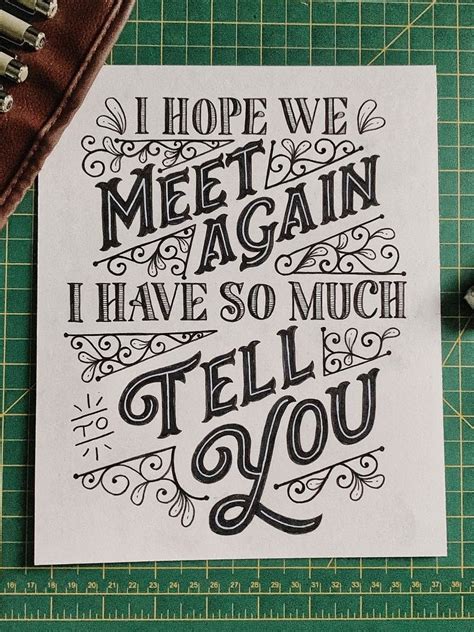 I HOPE WE
MEET
AGAIN
I HAVE SO MUCH
TO
TELL
YOU
16 17 18 19 20 21 22 23 24 25 26 27 28 29 30 31 32 33 34 35 36 37 38 39